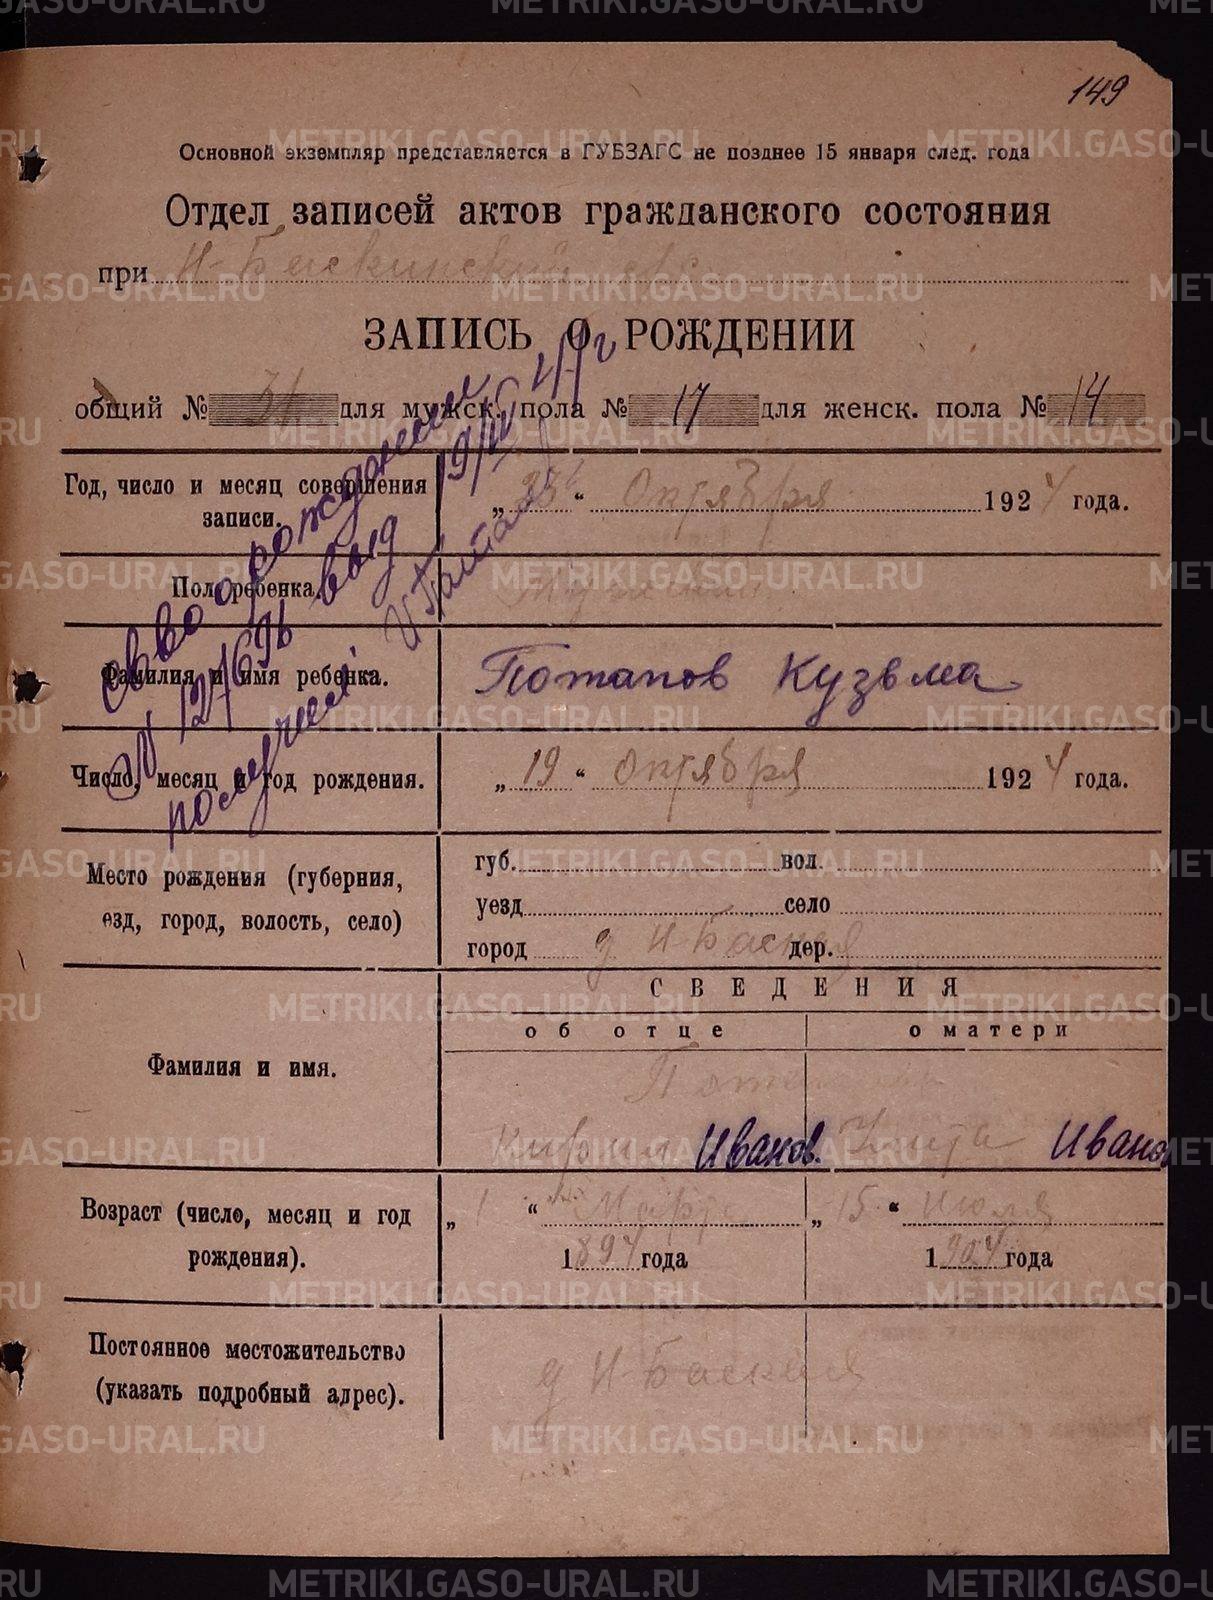 149
Основной экземпляр представляется в ГУБЗАГС не позднее 15 января след. года
Отдел записей актов гражданского состояния
при
ЗАПИСЬ О РОЖДЕНИИ
общий № 31 для мужск. пола № 17 для женск. пола № 14
Год, число и месяц совершения записи. „ “ октября 1924 года.
Пол ребенка. Мужской
Фамилия и имя ребенка. Потапов Кузьма
Число, месяц и год рождения. „19“ октября 1924 года.
Место рождения (губерния, езд, город, волость, село)
губ. вол.
уезд село
город д Н-Баская дер.
СВЕДЕНИЯ
об отце о матери
Фамилия и имя.
Кирилл Иванов.
Иванов
Возраст (число, месяц и год рождения).
„1“ Марта 1894 года
„15“ Июля 1904 года
Постоянное местожительство (указать подробный адрес).
д Н-Баская
св во о рождении
№ 127696 выд 19/III 47г
получил
METRIKI.GASO-URAL.RU